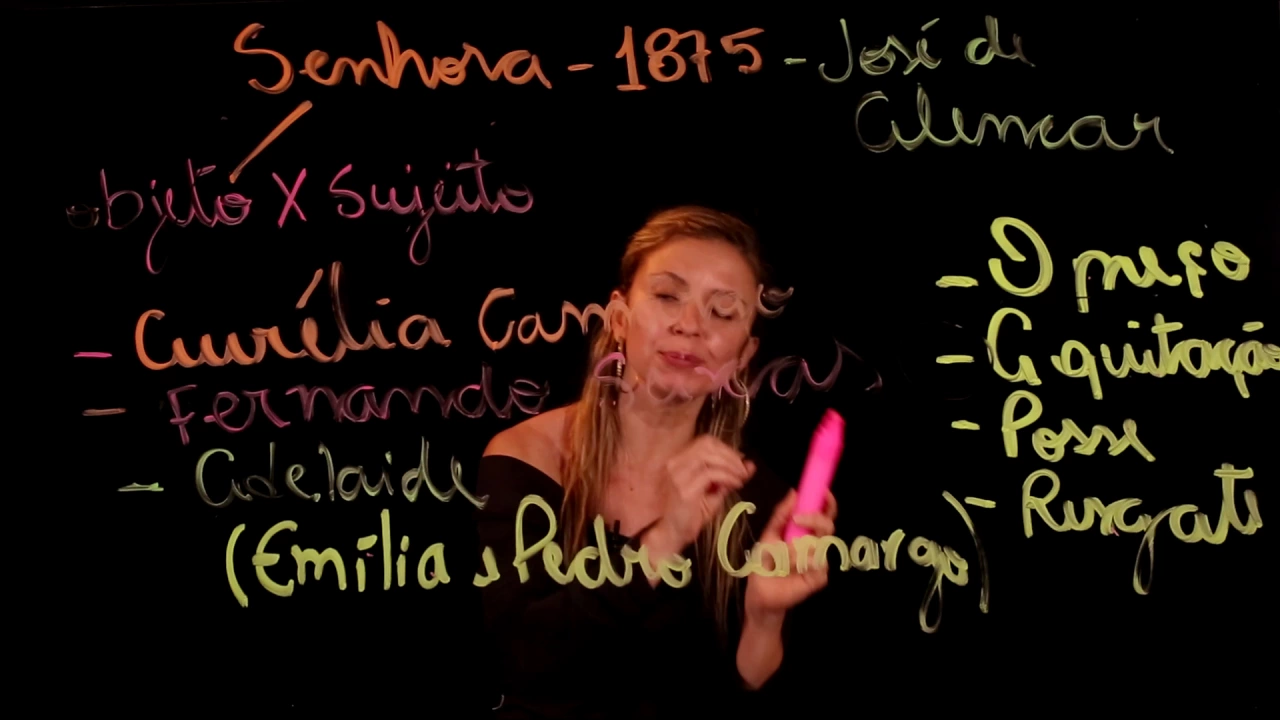 Senhora - 1875 - José de
Alencar
objeto X Sujeito
- Aurélia Camargo
- Fernando Seixas
- Adelaide
(Emília e Pedro Camargo)
- O preço
- A quitação
- Posse
- Resgate